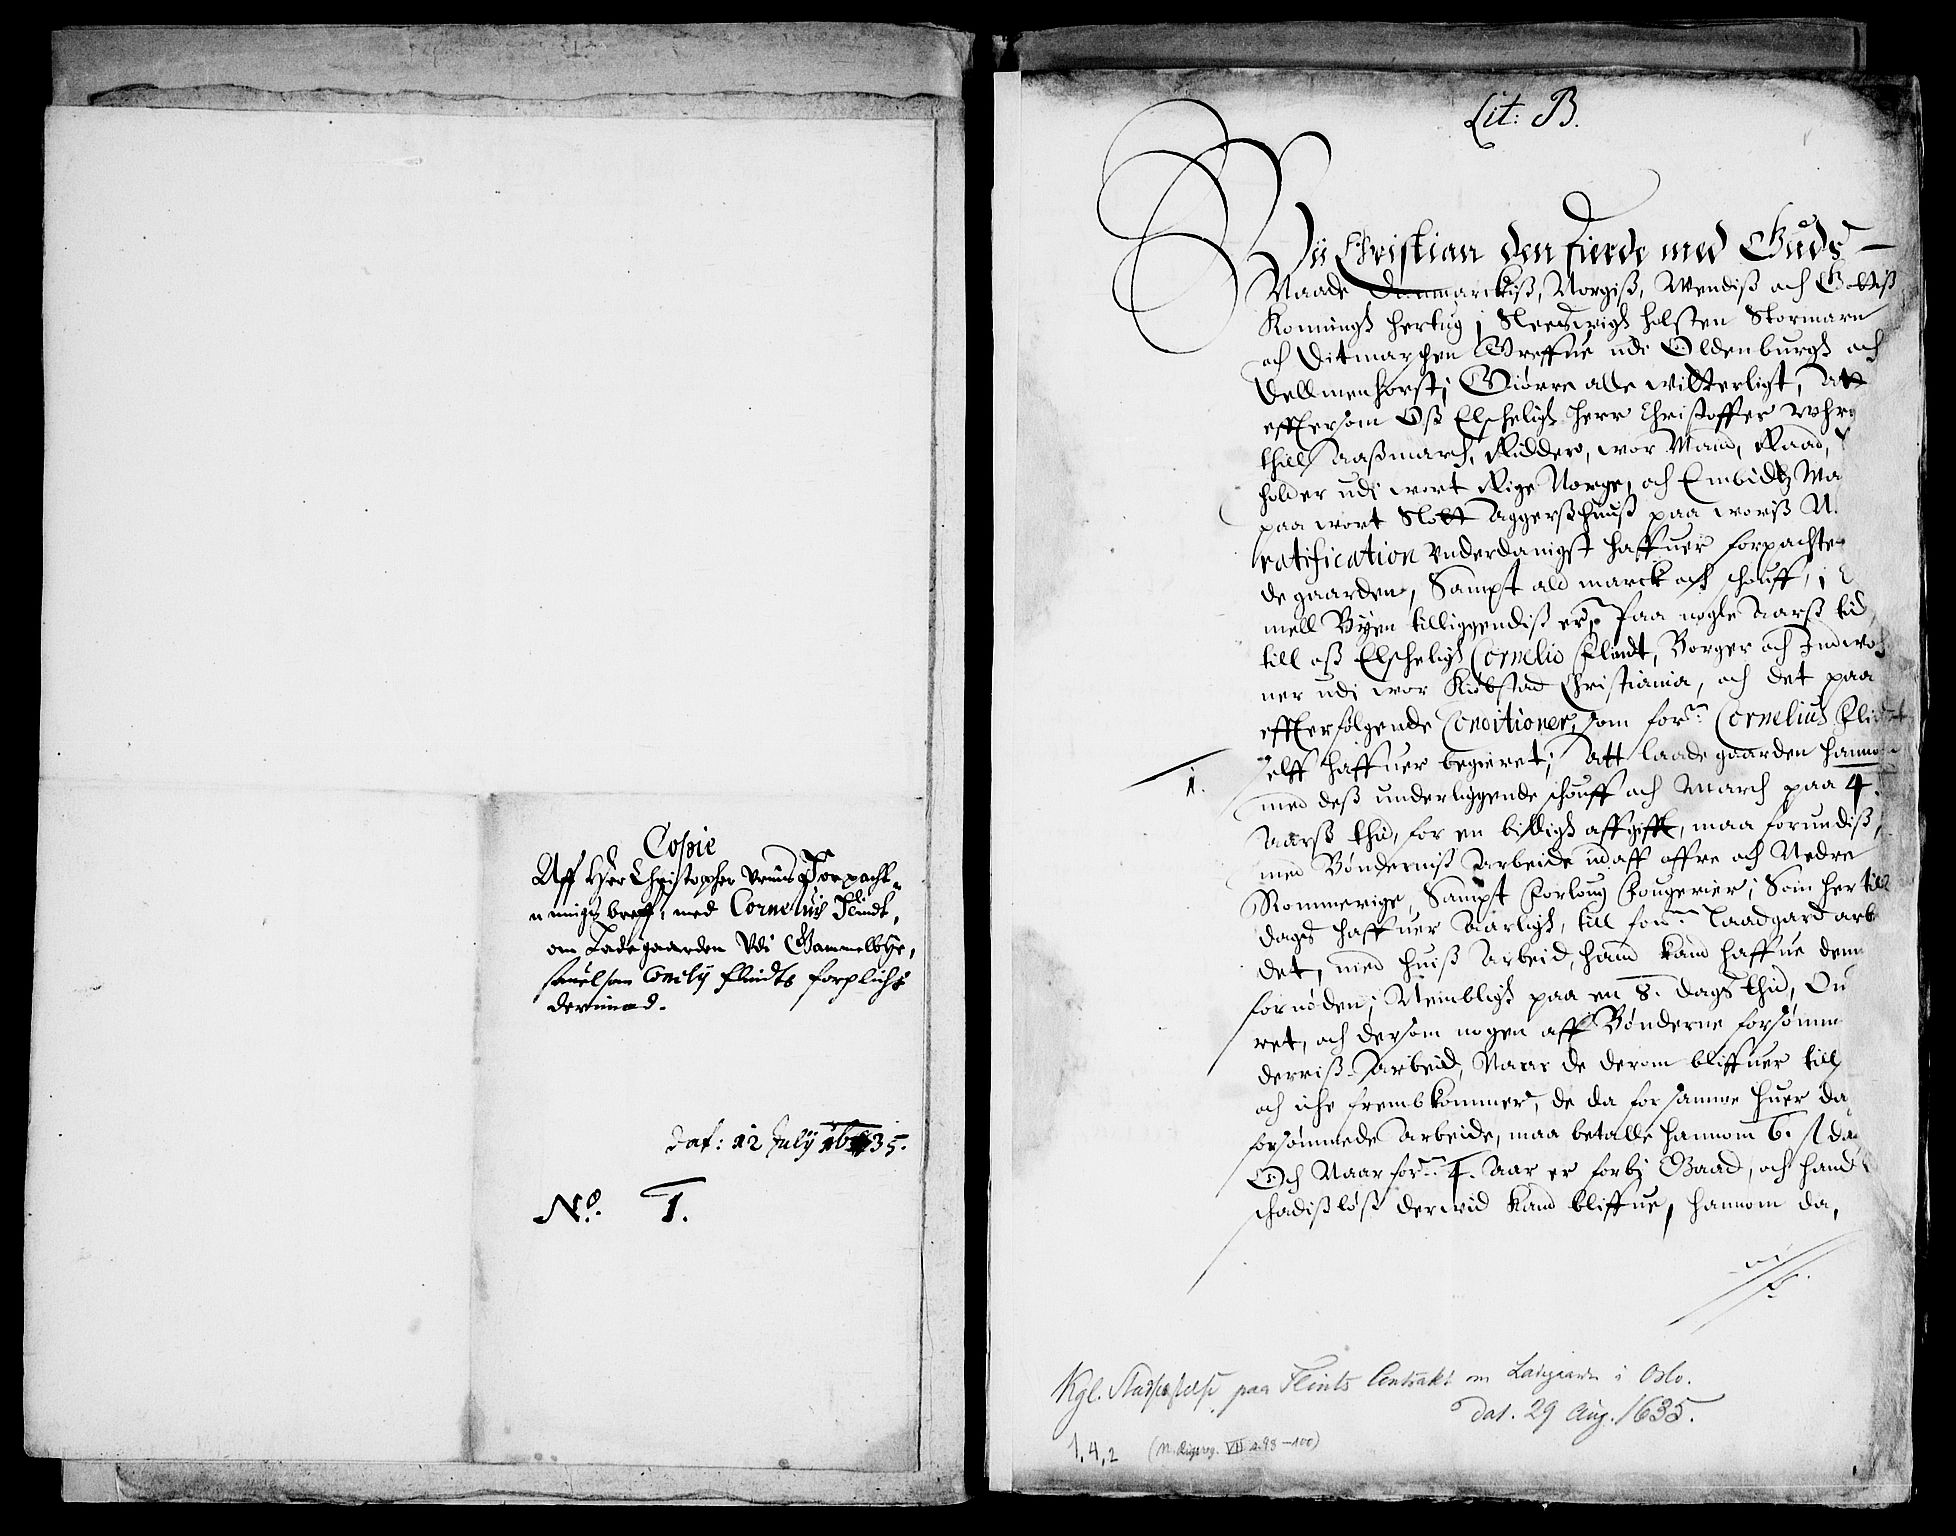 Copie
Aff Her Christopher Urnis Forpacht-
ningsbreff, med Cornelius Flindt,
om Ladegaarden Udi Gammelbye,
saauelsom Cornely Flindts forplicht
derimod.
Dat: 12 July 1635.
No. 1.
Lit: B.
Wii Christian den fierde med Guds
Naade Danmarckiß, Norgiß, Wendiß och Gottiß
Konningh hertug i Sleedswigh holsten Stormarn
och Ditmarschen Greffue udi Oldenburgh och
Dellmenhorst; Giørre alle witterligt, Att
effttersom Oß Elschelig Herr Christoffer Uhrn
thill Aaßmarch, Ridder, wor Mand, Raad,
holder udi wort Rige Norge, och Embidtz Ma
paa wort Slott Aggerßhuuß paa woriß N.
ratification underdanigst haffuer forpachte
de gaarden, Sampt ald marck och schouff, i
mell Byen tilliggendiß er, Paa nogle Aarß tid
till oß Elschelig Cornelio Flindt, Borger och Indwoh
ner udi wor Kiøbstad Christiania, och det paa
effterfølgende Conditioner, som forne: Cornelius Flindt
selff haffuer begieret; Att laadegaarden hannom
1. med deß underliggende schouff och March paa 4.
Aarß thid, for en billigh affgifft, maa forundiß,
med Bønderniß Arbeide udaff offre och Nedre
Rommerige, Sampt Forloug Fougerier; Som her till
dags haffuer Aarligh, till forne: Laadgard arb
det, med huiß Arbeid, hand kand haffue denn
fornøden; Nembligh paa en 8. dags thid, Om
ret, och dersom nogen aff Bønderne forsømm
derriß Arbeid, Naar de derom bliffuer till
och iche frembkommer, de da for samme huer da
forsømmede Arbeide, maa betalle hannom 6. ß da
Och Naar forne: 4. Aar er forbj Gaad, och hand
schadißløß derwid kand bliffue, hannom da,
Kgl. Stadfæstelse paa Flints Contrakt om Ladegaarden i Oslo.
dat. 29 Aug. 1635.
1,4,2 (N. Rigsreg. VII s. 98-100)